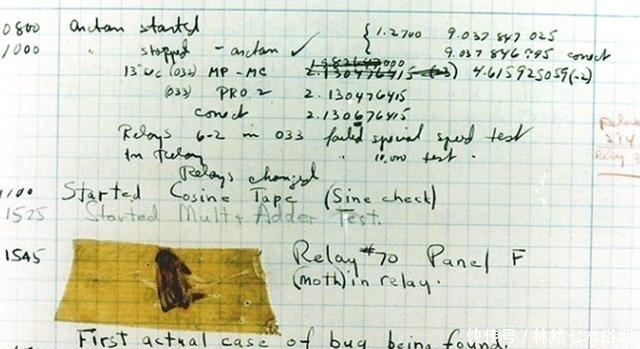 0800 antan started { 1.2700 9.037 847 025
1000 " stopped - antan ✓ 9.037 846 795 conect
13" uc (032) MP - MC 1.982647000 2.130476415 (-3) 4.615925059(-2)
(033) PRO 2 2.130476415
conect 2.130676415
Relays 6-2 in 033 failed special speed test
In Relay " 10.000 test.
Relays changed
1100 Started Cosine Tape (Sine check)
1525 Started Mult + Adder Test.
1545 Relay #70 Panel F
(moth) in relay.
First actual case of bug being found.
Relay
Relay
快传号 / 林然七